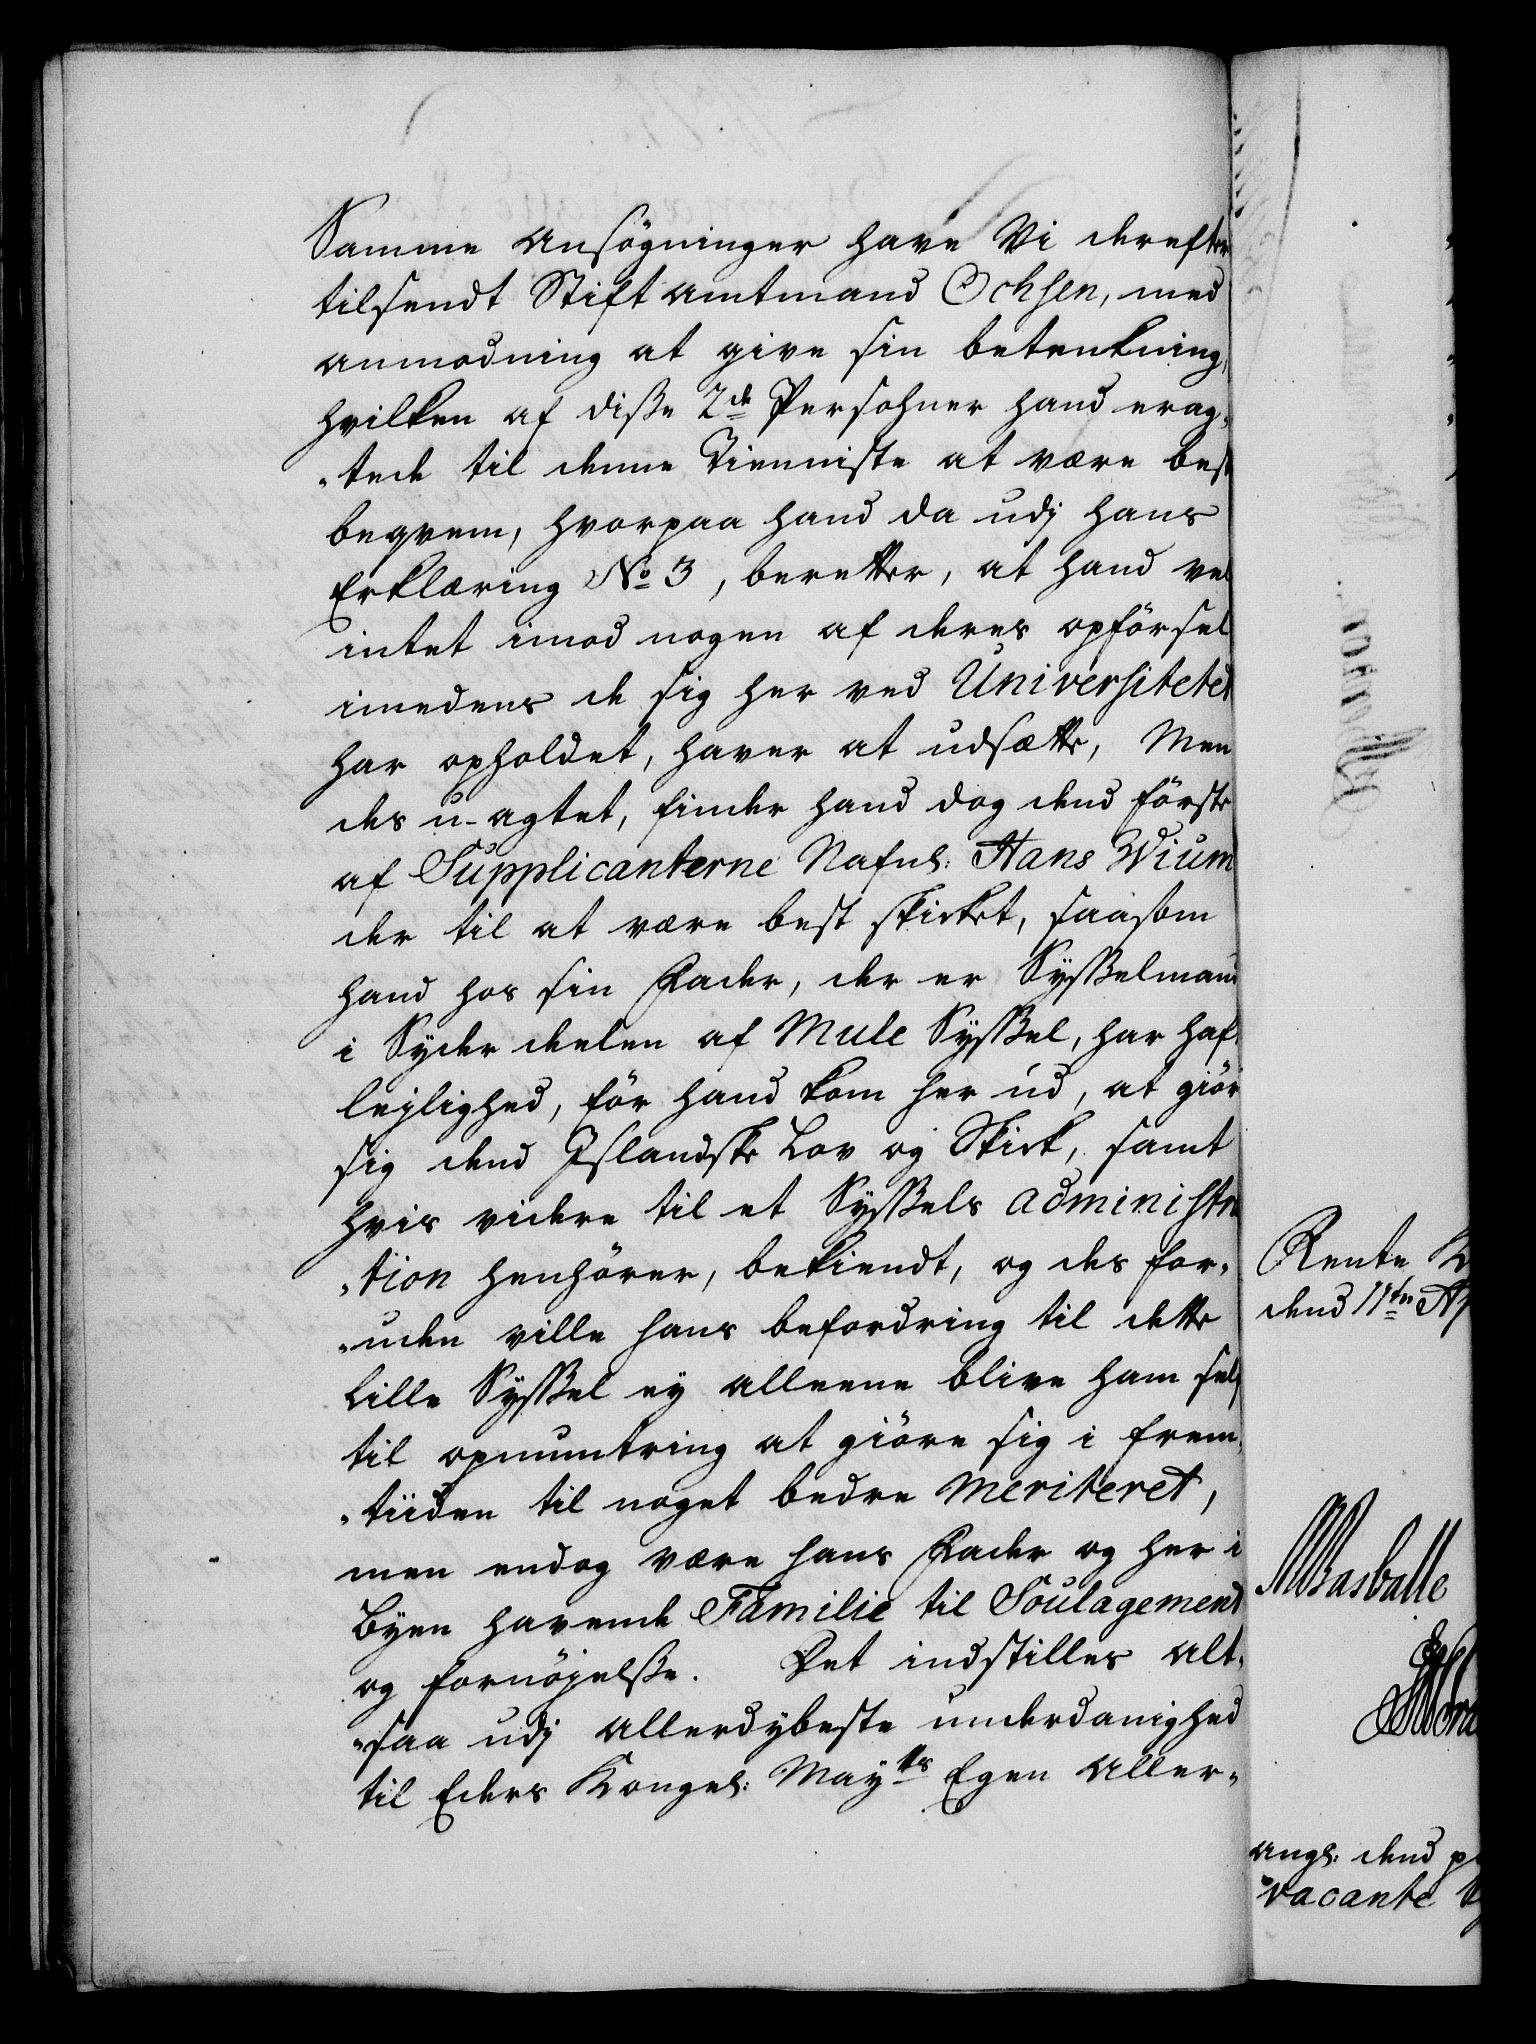 Samme Ansögninger have Vi derefter
tilsendt Stiftamtmand Ochsen, med
anmodning at give sin betenkning,
hvilken af disse 2de Persohner hand erag„
„tede til denne Tienniste at være best
beqvem, hvorpaa hand da udj hans
Erklæring No 3, beretter, at hand vel
intet imod nogen af deres opförsel
imedens de sig her ved Universitetet
har opholdet, haver at udsætte, Men
des u-agtet, finder hand dog dend förste
af Supplicanterne Nafnl: Hans Wium
der til at være best skicket, saasom
hand hos sin Fader, der er Sysselmand
i Syder deelen af Mule Syssel, har haft
lejlighed, för hand kom her ud, at giöre
sig dend Islandske Lov og Skick, samt
hvis videre til et Syssels administra
„tion henhörer, bekiendt, og des for„
„uden ville hans befordring til dette
Lille Syssel ey alleene blive ham selv
til opmuntring at giöre sig i frem„
„tiiden til noget bedre meriteret,
men endog være hans Fader og her i
Byen havende Familie til Soulagement
og fornöyelsse. Det indstilles alt„
„saa udj allerdybeste underdanighed
til Eders Kongel: Maytts Egen Aller„
Rente K
dend 11te Ap
angl: dend
vacante